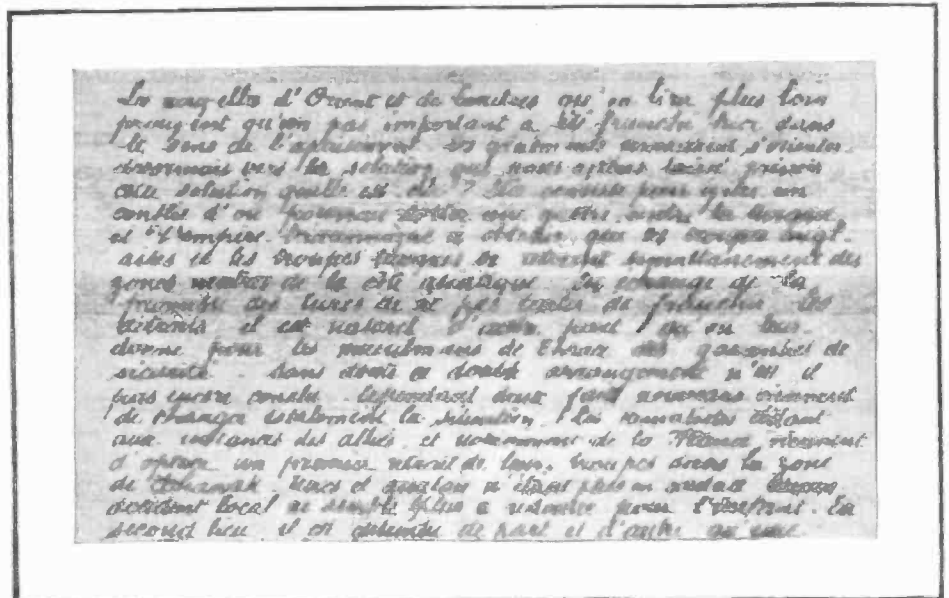 Les nouvelles d'Orient et de Londres qu'on lira plus loin
prouvent qu'un pas important a été franchi hier dans
le sens de l'apaisement. Les s'orienter
désormais vers la solution que nous avons laissé prévoir
cette solution quelle est elle ? Elle consiste pour éviter un
conflit d'où pourrait sortir une guerre entre la Turquie
et l'empire britannique à obtenir que les troupes angl-
aises et les troupes turques se retirent simultanément des
zones neutres de la côte asiatique. En échange de la
promesse des turcs de ne pas tenter de franchir les
détroits il est naturel d'autre part qu'on leur
donne pour les musulmans de Thrace des garanties de
sécurité. Sans doute ce double arrangement n'est il
pas encore conclu. Cependant deux faits nouveaux viennent
de changer totalement la situation. Les kémalistes cédant
aux instances des alliés et notamment de la France viennent
d'opérer un premier retrait de leurs troupes dans la zone
de Tchanak. Turcs et anglais n'étant plus en contact
accident local ne semble plus à redouter pour l'instant. En
second lieu il est entendu de part et d'autre qu'une